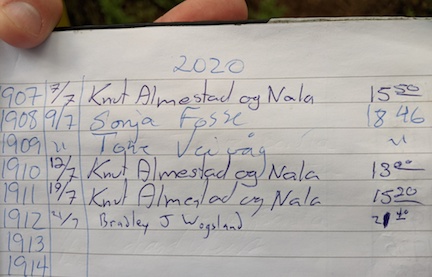 2020
907 7/7 Knut Almestad og Nala 15 50
1908 9/7 Sonja Fosse 18 46
1909 " Tone Veivåg "
1910 12/7 Knut Almestad og Nala 18 00
1911 19/7 Knut Almestad og Nala 15 20
1912 /7 Bradley J Wogsland 21 40
1913
1914